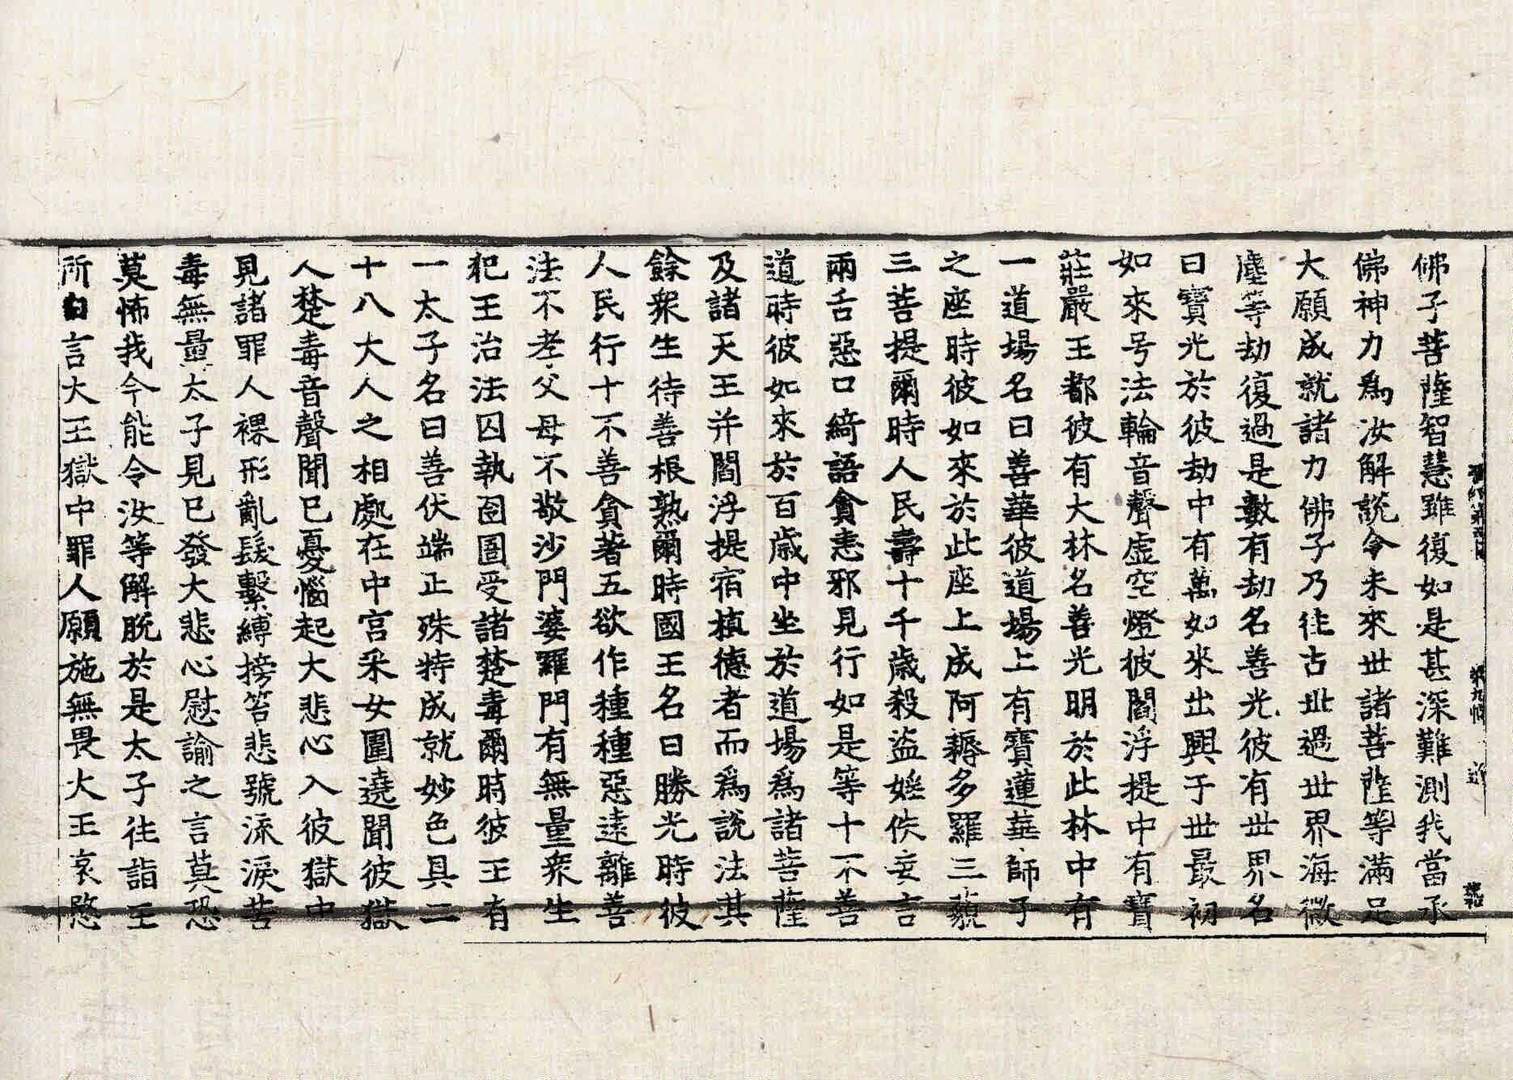 佛子菩薩智慧雖復如是甚深難測我當承
佛神力爲汝解說令未來世諸菩薩等滿足
大願成就諸力佛子乃往古世過世界海微
塵等劫復過是數有劫名善光彼有世界名
曰寶光於彼劫中有萬如來出興于世最初
如來号法輪音聲虛空燈彼閻浮提中有寶
莊嚴王都彼有大林名善光明於此林中有
一道場名曰善華彼道場上有寶蓮華師子
之座時彼如來於此座上成阿耨多羅三藐
三菩提爾時人民壽十千歲殺盜婬佚妄言
兩舌惡口綺語貪恚邪見行如是等十不善
道時彼如來於百歲中坐於道場爲諸菩薩
及諸天王并閻浮提宿植德者而爲說法其
餘衆生待善根熟爾時國王名曰勝光時彼
人民行十不善貪著五欲作種種惡遠離善
法不孝父母不敬沙門婆羅門有無量衆生
犯王治法囚執囹圄受諸楚毒爾時彼王有
一太子名曰善伏端正殊特成就妙色具二
十八大人之相處在中宮采女圍遶聞彼獄
人楚毒音聲聞已憂惱起大悲心入彼獄中
見諸罪人裸形亂髮繫縛搒笞悲號流淚苦
毒無量太子見已發大悲心慰諭之言莫恐
莫怖我今能令汝等解脫於是太子往詣王
所白言大王獄中罪人願施無畏大王哀愍